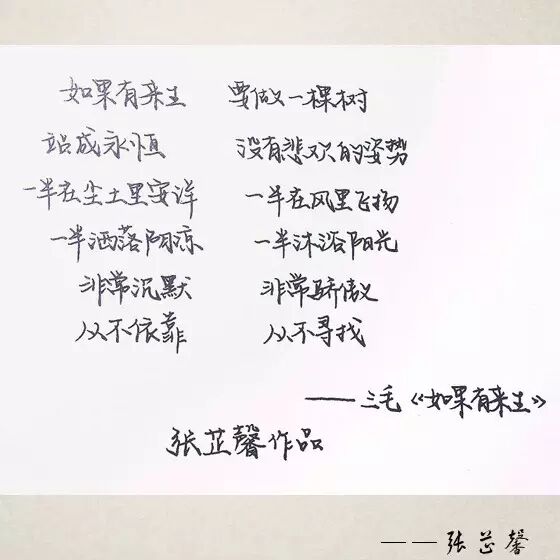 如果有来生 要做一棵树
站成永恒 没有悲欢的姿势
一半在尘土里安详 一半在风里飞扬
一半洒落阴凉 一半沐浴阳光
非常沉默 非常骄傲
从不依靠 从不寻找
——三毛《如果有来生》
张芷馨作品
——张芷馨